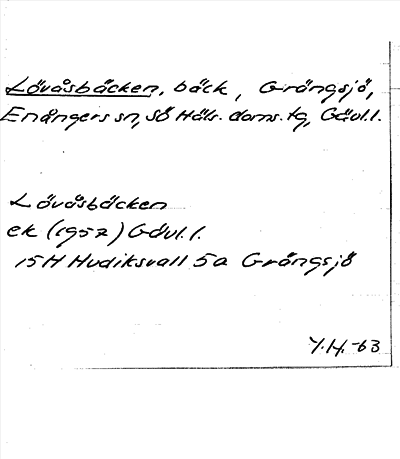 Lövåsbäcken, bäck, Grängsjö,
Enångers sn, Sö Häls. doms. tg, Gävl. l.
Lövåsbäcken
ek (1957) Gävl. l.
15H Hudiksvall 5a Grängsjö
Y.H. -63